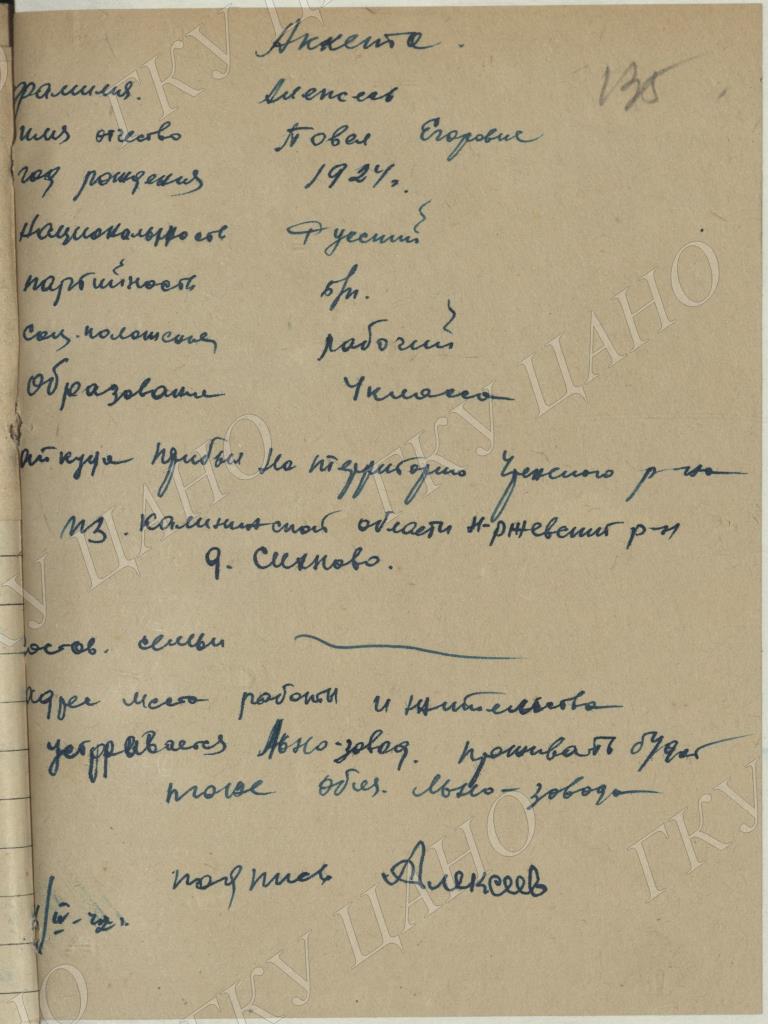 Анкета.
135
фамилия. Алексеев
имя отчество Повел Егорович
год рождения 1924 г.
национальность Русский
партийность б/п.
соц. положение рабочий
Образование 4 класса
откуда прибыл на территорию Уренского р-на
из. Калининской области Н-ржевский р-н
д.
состав. семьи
адрес места работы и жительства
устраивается Льно-завод. проживать будет
тоже Льно-завода
подпись Алексеев
/IV-42 г.
ГКУ ЦАНО